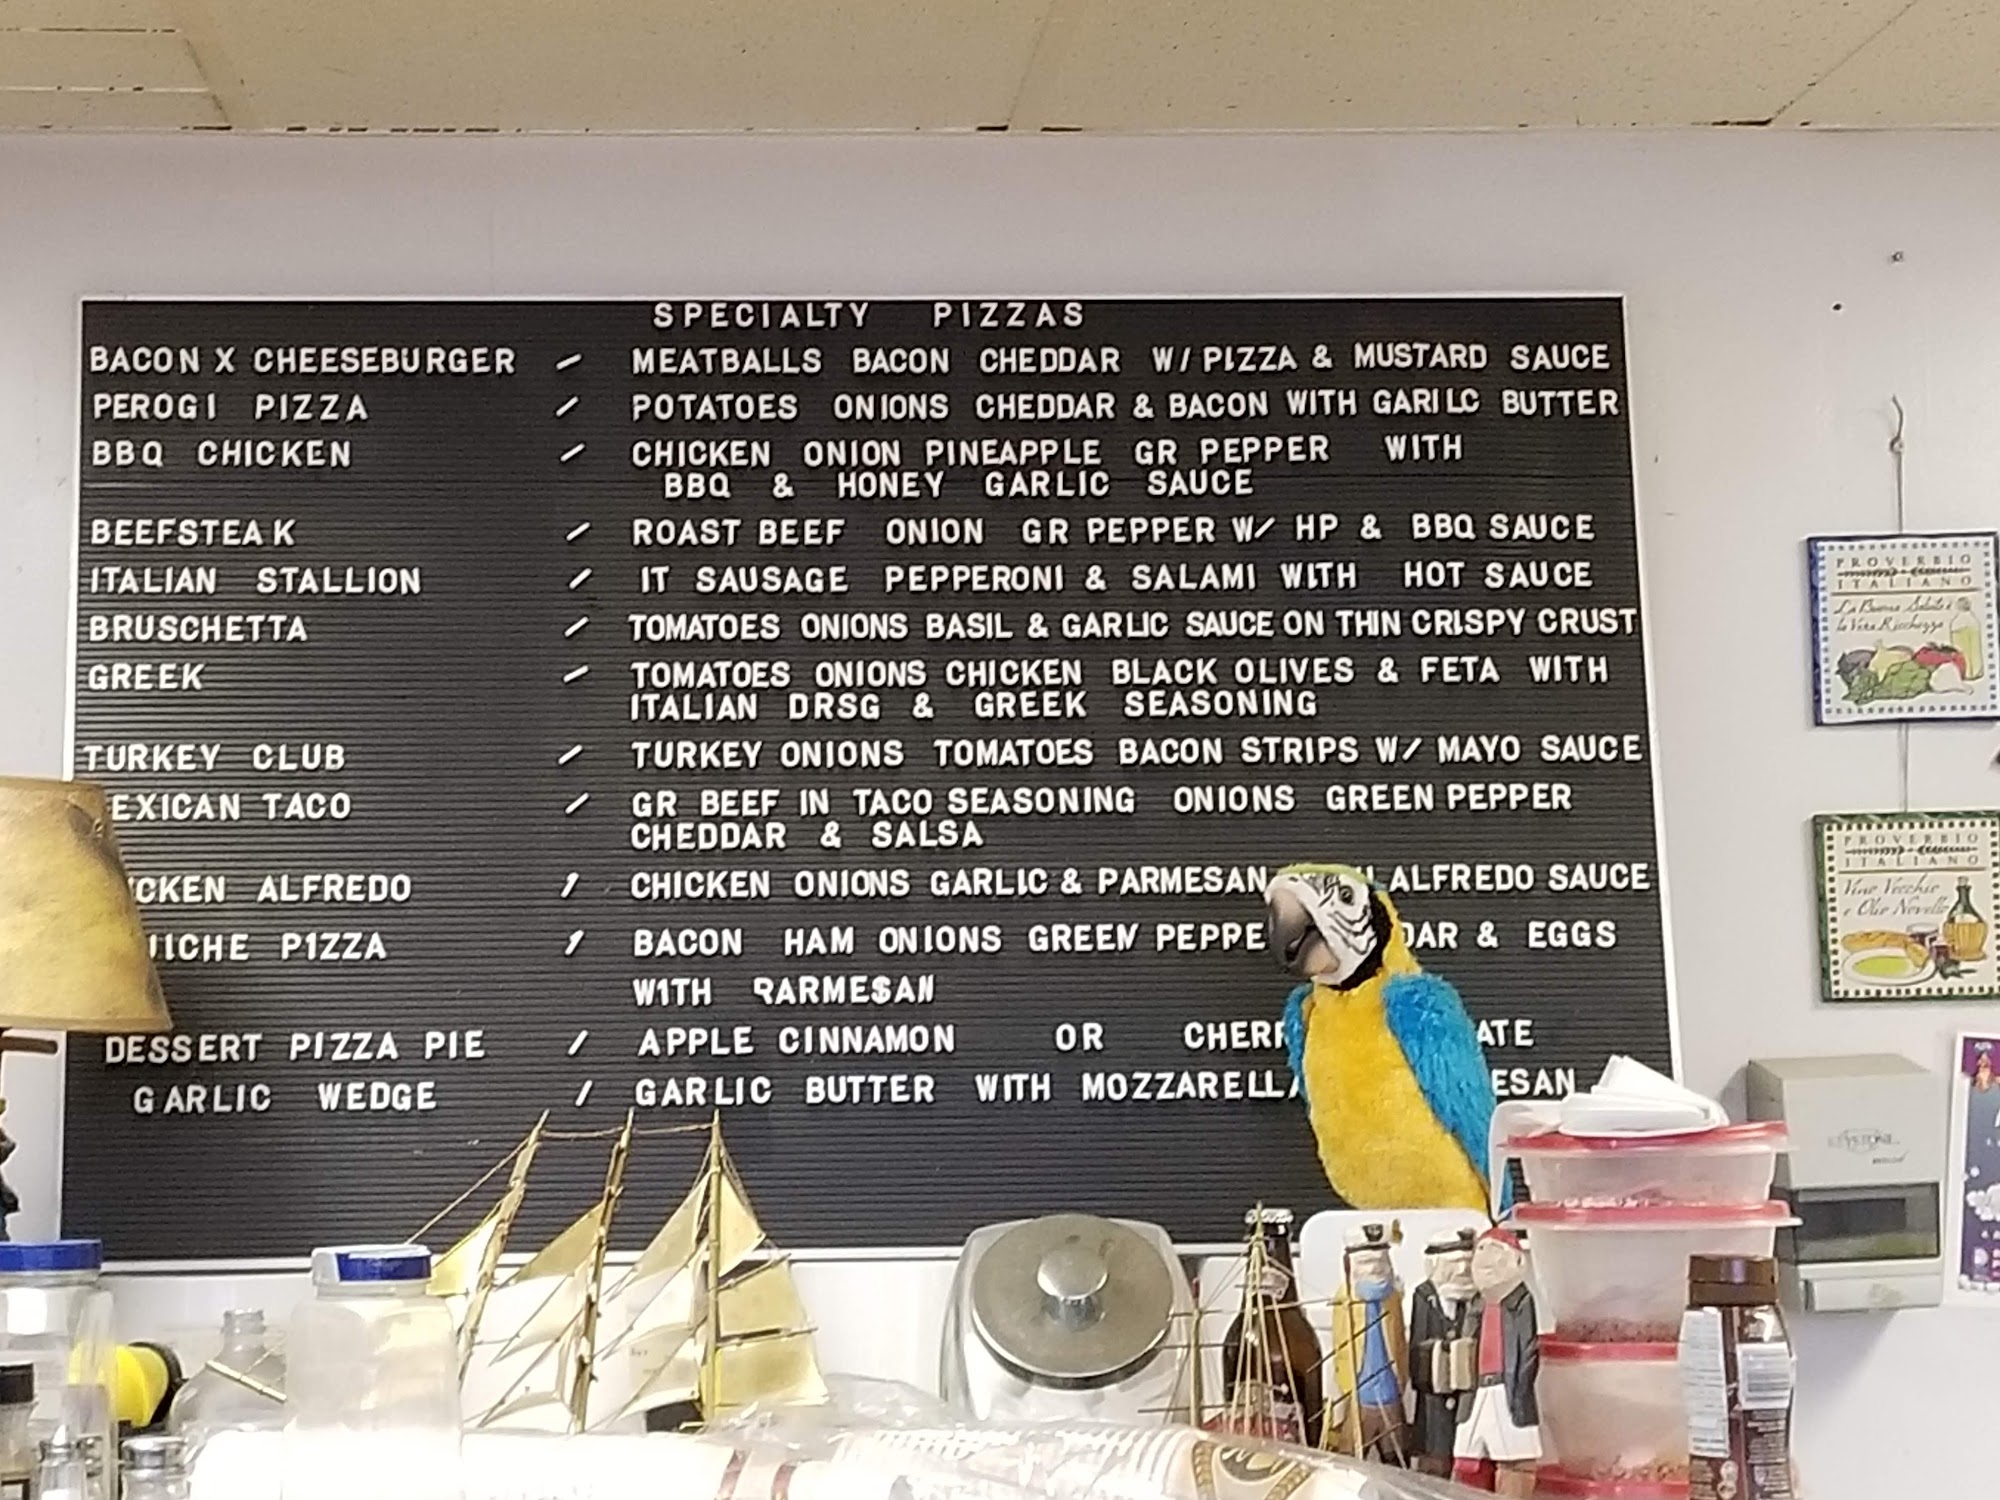 SPECIALTY PIZZAS
BACON X CHEESEBURGER / MEATBALLS BACON CHEDDAR W/ PIZZA & MUSTARD SAUCE
PEROGI PIZZA / POTATOES ONIONS CHEDDAR & BACON WITH GARILC BUTTER
BBQ CHICKEN / CHICKEN ONION PINEAPPLE GR PEPPER WITH
BBQ & HONEY GARLIC SAUCE
BEEFSTEAK / ROAST BEEF ONION GR PEPPER W/ HP & BBQ SAUCE
ITALIAN STALLION / IT SAUSAGE PEPPERONI & SALAMI WITH HOT SAUCE
BRUSCHETTA / TOMATOES ONIONS BASIL & GARLIC SAUCE ON THIN CRISPY CRUST
GREEK / TOMATOES ONIONS CHICKEN BLACK OLIVES & FETA WITH
ITALIAN DRSG & GREEK SEASONING
TURKEY CLUB / TURKEY ONIONS TOMATOES BACON STRIPS W/ MAYO SAUCE
EXICAN TACO / GR BEEF IN TACO SEASONING ONIONS GREEN PEPPER
CHEDDAR & SALSA
CKEN ALFREDO / CHICKEN ONIONS GARLIC & PARMESAN ALFREDO SAUCE
ICHE P1ZZA / BACON HAM ONIONS GREEN PEPPE DAR & EGGS
W1TH PARMESAN
DESSERT PIZZA PIE / APPLE CINNAMON OR CHERR ATE
GARLIC WEDGE / GARLIC BUTTER WITH MOZZARELLA ESAN
PROVERBIO
ITALIANO
La Buona Salute è
la Vera Ricchezza
PROVERBIO
ITALIANO
Vino Vecchio
e Olio Novello